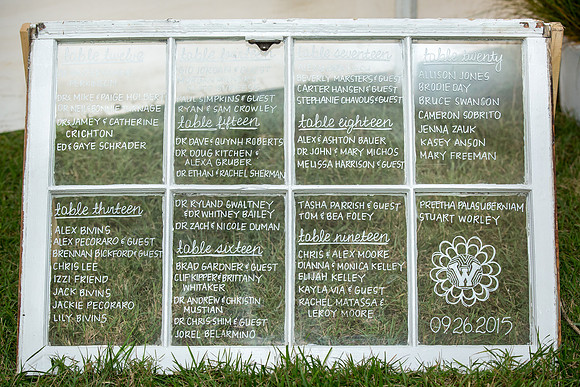 DR MIKE & PAIGE
DR JAMEY & CATHERINE
CRICHTON
ED & GAYE SCHRADER
table thirteen
ALEX BIVINS
ALEX PECORARO & GUEST
BRENNAN BICKFORD & GUEST
CHRIS LEE
IZZI FRIEND
JACK BIVINS
JACKIE PECORARO
LILY BIVINS
SIMPKINS & GUEST
RYAN & SAM CROWLEY
table fifteen
DR DAVE & QUYNH ROBERTS
DR DOUG KITCHEN &
ALEXA GRUBER
DR ETHAN & RACHEL SHERMAN
DR RYLAND GWALTNEY
& DR WHITNEY BAILEY
DR ZACH & NICOLE DUMAN
table sixteen
BRAD GARDNER & GUEST
CLIF KIPPER & BRITTANY
WHITAKER
DR ANDREW & CHRISTIN
MUSTIAN
DR CHRIS SHIM & GUEST
JOREL BELARMINO
table seventeen
BEVERLY MARSTERS & GUEST
CARTER HANSEN & GUEST
STEPHANIE CHAVOUS & GUEST
table eighteen
ALEX & ASHTON BAUER
DR JOHN & MARY MICHOS
MELISSA HARRISON & GUEST
TASHA PARRISH & GUEST
TOM & BEA FOLEY
table nineteen
CHRIS & ALEX MOORE
DIANNA & MONICA KELLEY
ELIJAH KELLEY
KAYLA VIA & GUEST
RACHEL MATASSA &
LEROY MOORE
table twenty
ALLISON JONES
BRODIE DAY
BRUCE SWANSON
CAMERON SOBRITO
JENNA ZAUK
KASEY ANSON
MARY FREEMAN
PREETHA PALASUBERNIAM
STUART WORLEY
W
09.26.2015